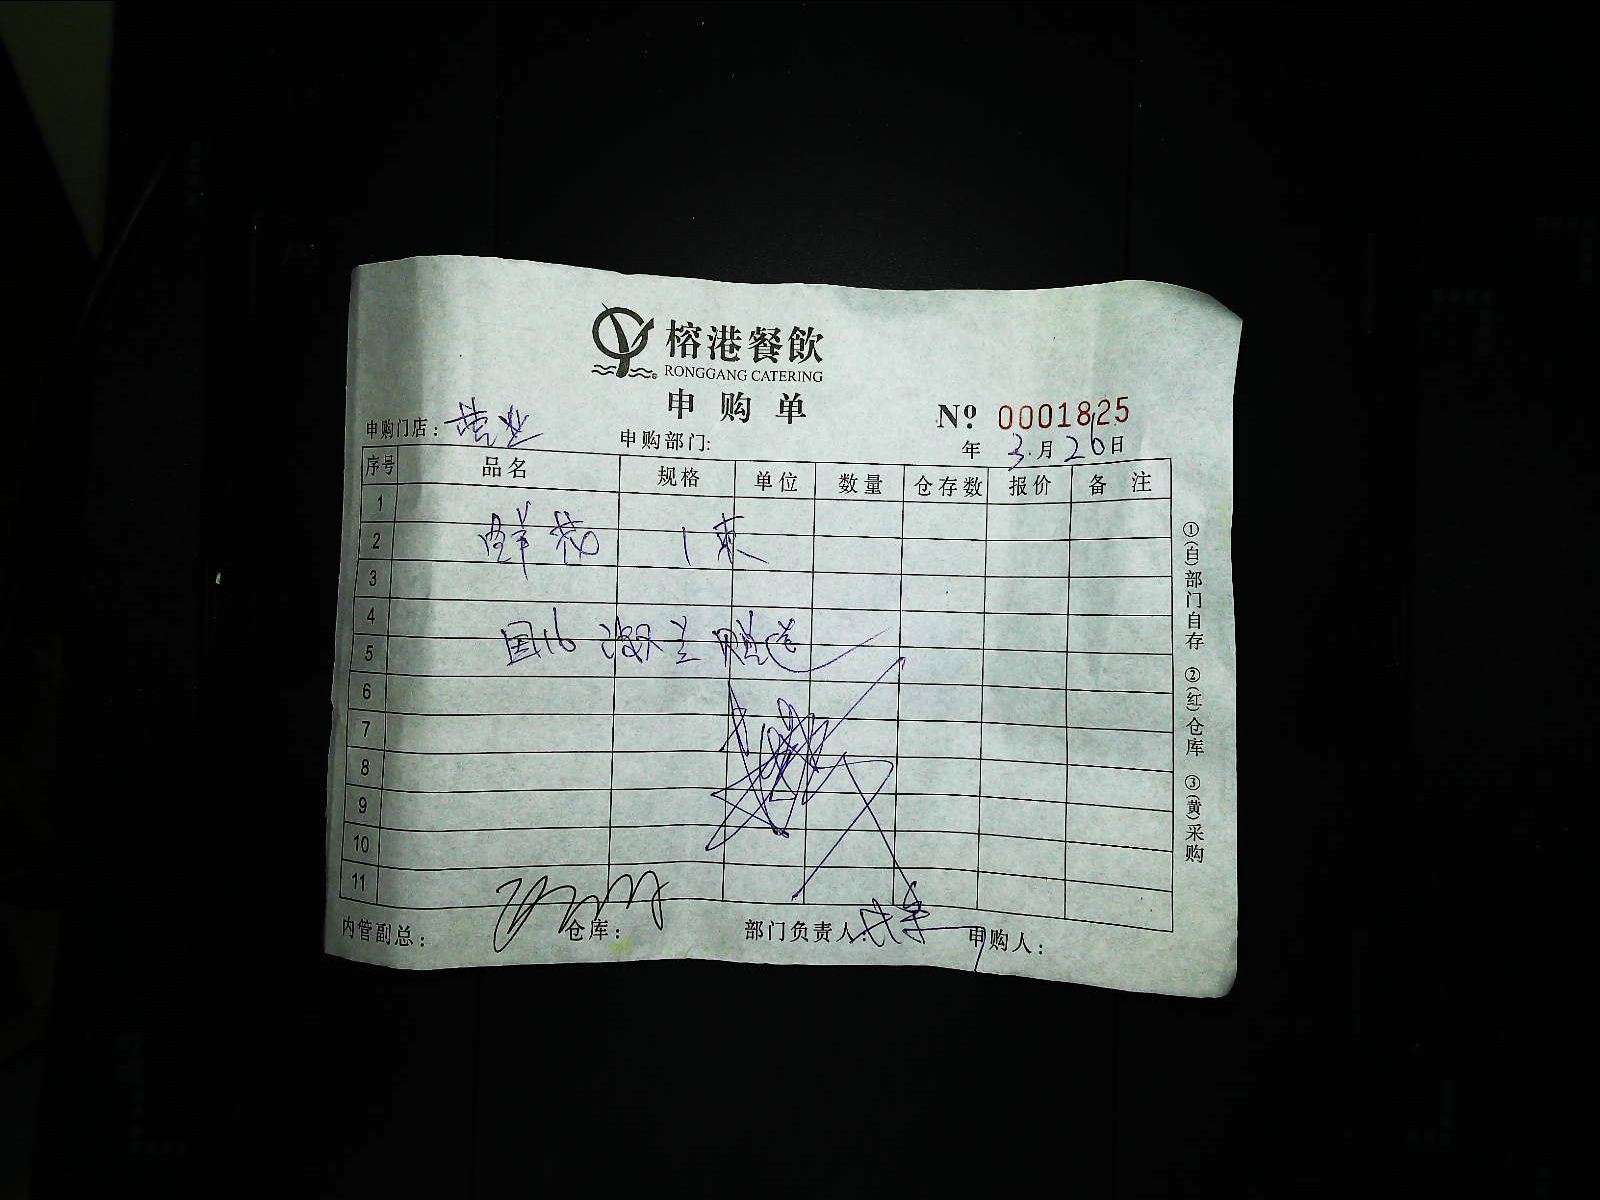 榕港餐飲
RONGGANG CATERING
申购单
Nº 0001825
申购门店: 营业
申购部门:
年 3月26日
序号 品名 规格 单位 数量 仓存数 报价 备注
1
2 鲜花 1束
3
4
5 赠送
6
7
8
9
10
11
内管副总: 仓库: 部门负责人: 申购人:
①(白)部门自存 ②(红)仓库 ③(黄)采购